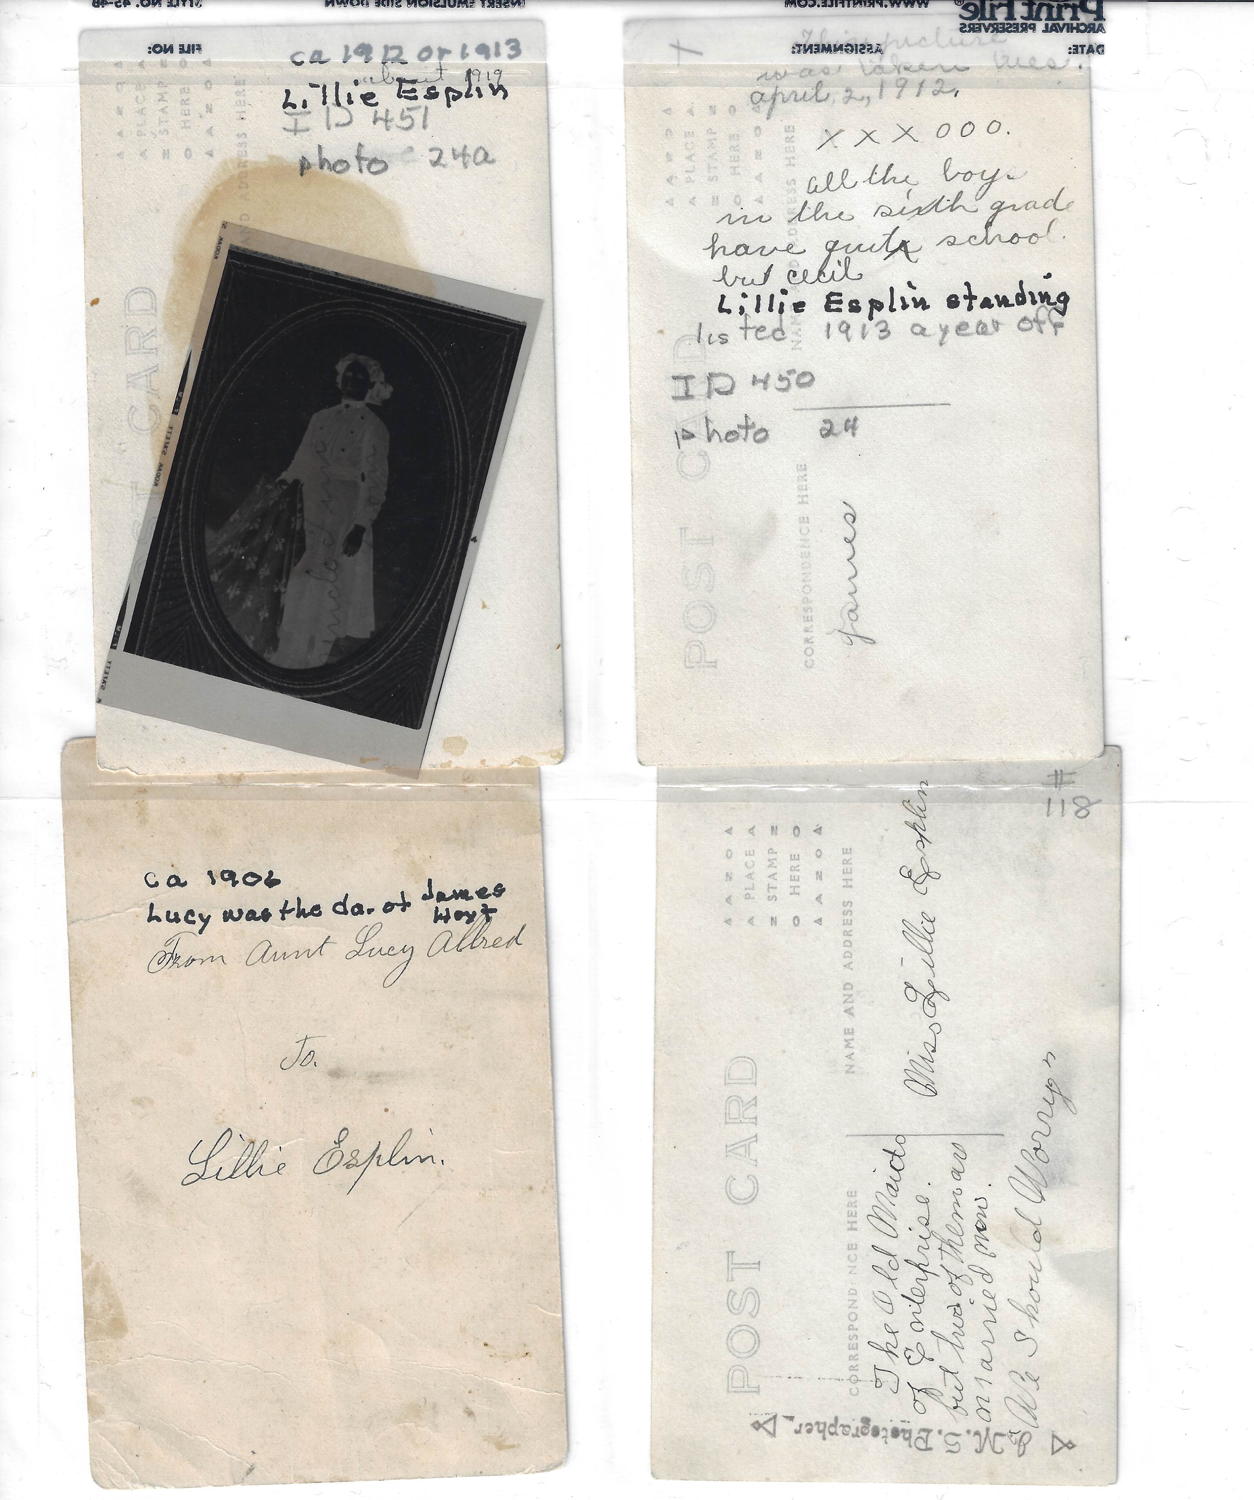 INSERT EMULSION SIDE DOWN
STYLE NO. 45-4B
WWW.PRINTFILE.COM
Print File®
ARCHIVAL PRESERVERS
FILE NO:
ASSIGNMENT:
DATE:
ca 1912 or 1913
about 1919
Lillie Esplin
ID 451
photo 24a
PLACE
STAMP
HERE
POST CARD
This picture
was taken Tues.
april, 2, 1912.
x x x o o o.
all the boys
in the sixth grade
have quit school.
but cecil
Lillie Esplin standing
listed 1913 a year off
ID 450
photo 24
PLACE
STAMP
HERE
NAME AND ADDRESS HERE
POST CARD
CORRESPONDENCE HERE
James
ca 1906
Lucy was the da. of James
Hoyt
From Aunt Lucy Allred
To.
Lillie Esplin.
#
118
PLACE
STAMP
HERE
NAME AND ADDRESS HERE
Miss Lillie Esplin
POST CARD
CORRESPONDENCE HERE
The Old Maids
of Enterprise.
but two of them are
married now.
We Should Worry
Photographer